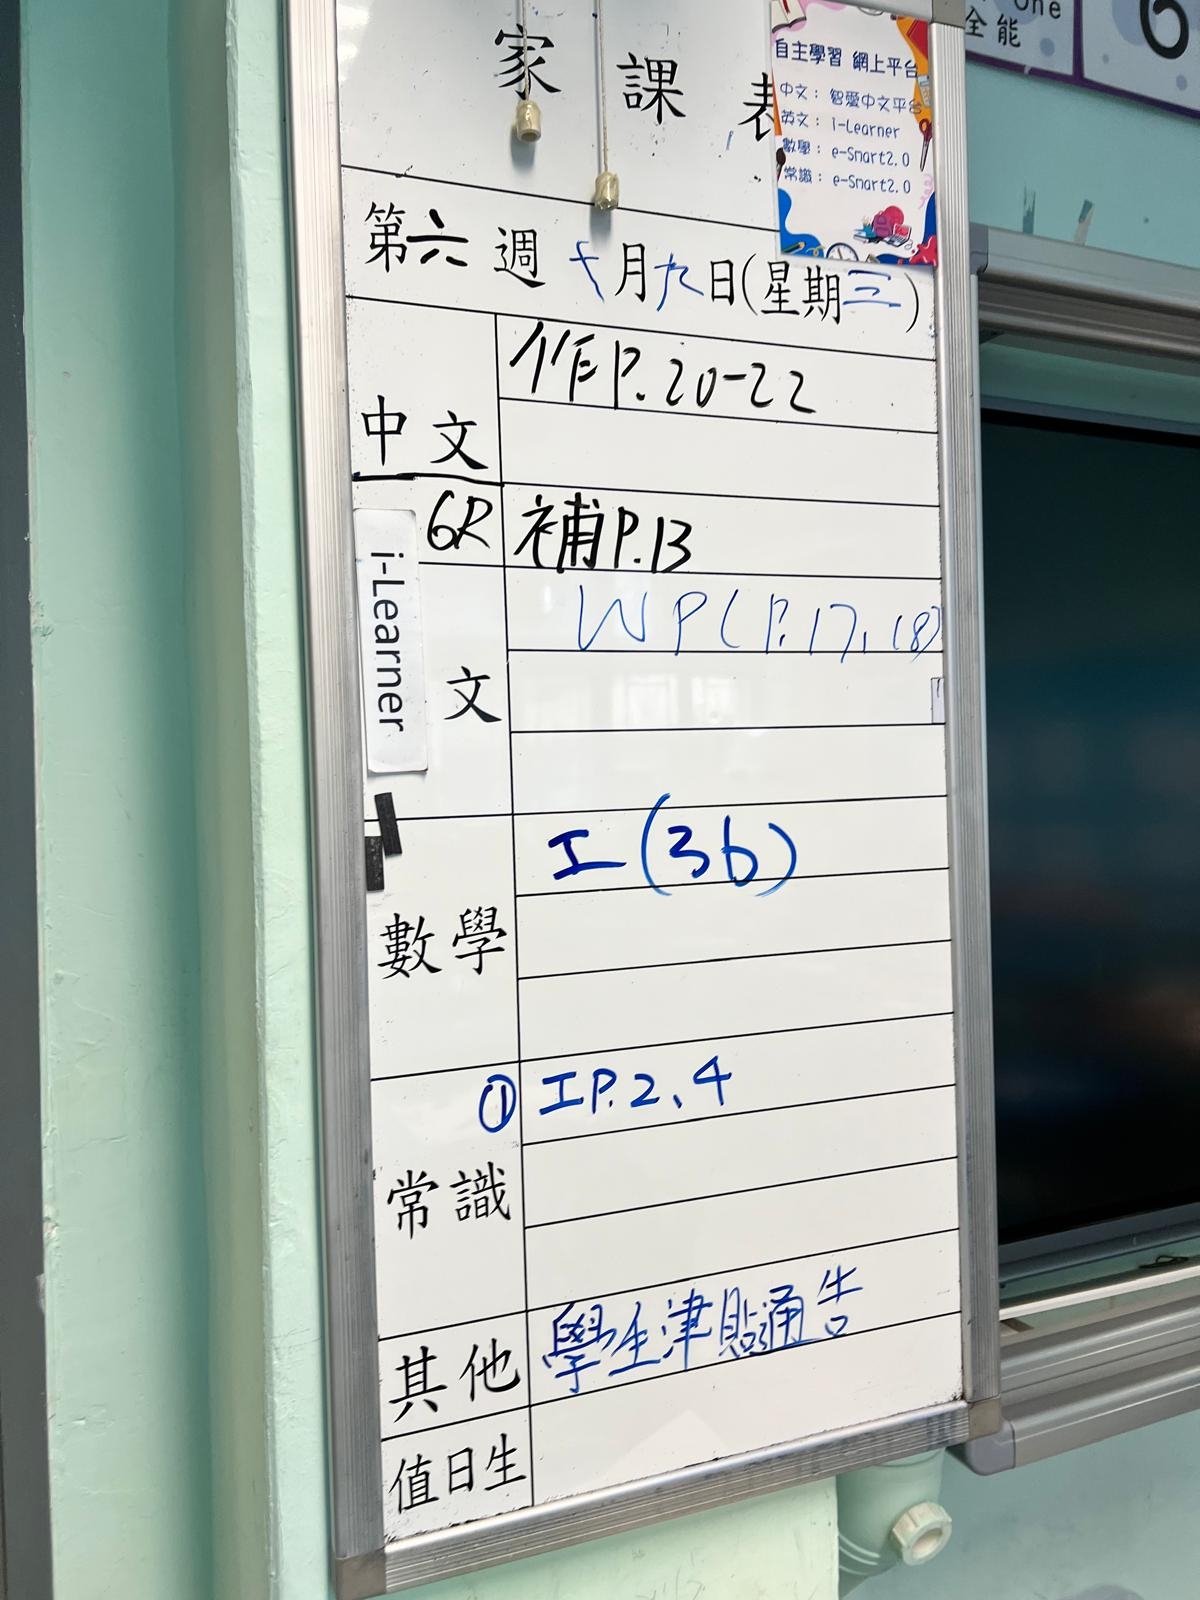 家課表
自主學習 網上平台
中文： 智愛中文平台
英文： i-Learner
數學： e-Smart2.0
常識： e-Smart2.0
One
全能
6
第六週 十月九日(星期三)
中文
作P.20-22
6R
補P.13
i-Learner
文
WP(P.17, 18)
數學
工(3b)
常識
① 工P.2、4
其他
學生津貼通告
值日生